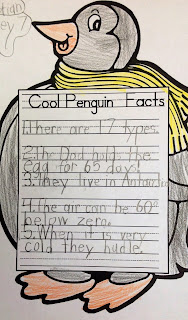 Cool Penguin Facts
1.There are 17 types.
2.Thy Dad holds the
egg for 65 days!
3.They live in Antarctica
4.The air can be 60°
below zero.
5.When it is very
cold they hudle.